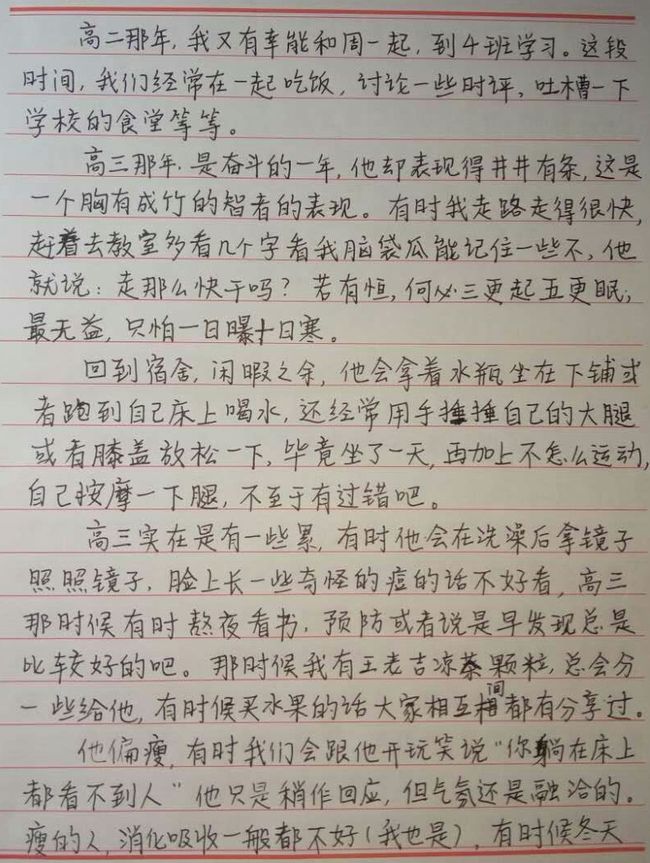 高二那年,我又有幸能和周一起,到4班学习。这段
时间,我们经常在一起吃饭,讨论一些时评,吐槽一下
学校的食堂等等。
高三那年,是奋斗的一年,他却表现得井井有条,这是
一个胸有成竹的智者的表现。有时我走路走得很快,
赶着去教室多看几个字看我脑袋瓜能记住一些不,他
就说:走那么快干吗?若有恒,何必三更起五更眠;
最无益,只怕一日曝十日寒。
回到宿舍,闲暇之余,他会拿着水瓶坐在下铺或
者跑到自己床上喝水,还经常用手捶捶自己的大腿
或者膝盖放松一下,毕竟坐了一天,再加上不怎么运动,
自己按摩一下腿,不至于有过错吧。
高三实在是有一些累,有时他会在洗澡后拿镜子
照照镜子,脸上长一些奇怪的痘的话不好看,高三
那时候有时熬夜看书,预防或者说是早发现总是
比较好的吧。那时候我有王老吉凉茶颗粒,总会分
一些给他,有时候买水果的话大家相互间都有分享过。
他偏瘦,有时我们会跟他开玩笑说"你躺在床上
都看不到人"他只是稍作回应,但气氛还是融洽的。
瘦的人,消化吸收一般都不好(我也是),有时候冬天